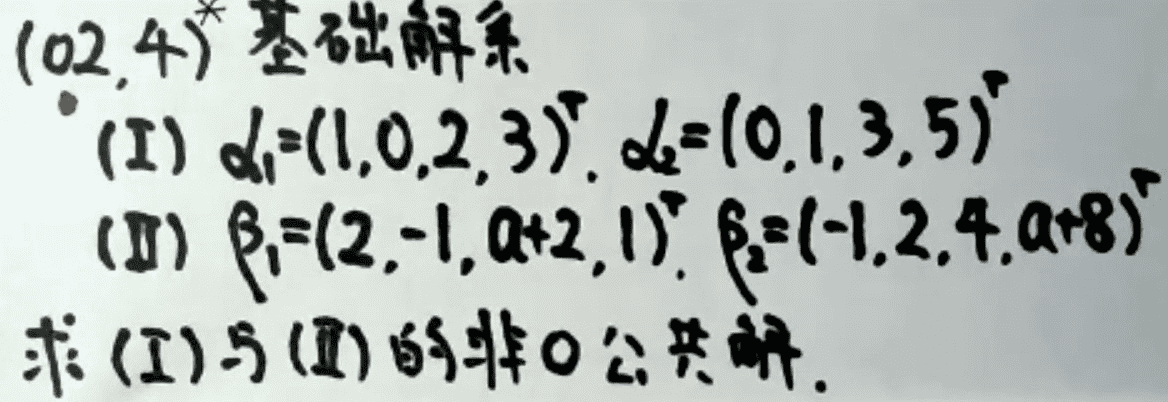 (02,4)* 基础解系
(I) α₁=(1,0,2,3)ᵀ. α₂=(0,1,3,5)ᵀ
(II) β₁=(2,-1,a+2,1)ᵀ. β₂=(-1,2,4,a+8)ᵀ
求(I)与(II)的非0公共解.